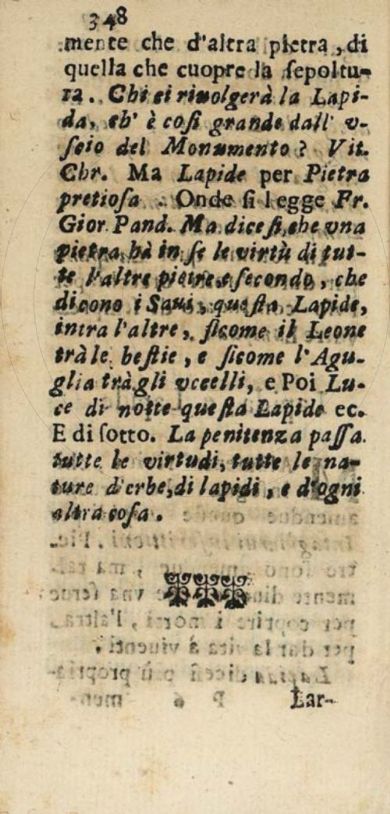 348
mente che d'altra pietra, di
quella che cuopre la sepoltu-
ra. Chi ci riuolgerà la Lapi-
da, ch' è così grande dall' v-
scio del Monumento? Vit.
Chr. Ma Lapide per Pietra
pretiosa. Onde si legge Fr.
Gior. Pand. Ma dicesi, che vna
pietra hà in se le virtù di tut-
te l'altre pietre, e secondo, che
dicono i Saui, questa Lapide,
intra l'altre, sicome il Leone
trà le bestie, e sicome l'Agu-
glia trà gli vccelli, e Poi Lu-
ce di notte questa Lapide ec.
E di sotto. La penitenza passa
tutte le virtudi, tutte le na-
ture d'erbe, di lapidi, e d'ogni
altra cosa.
Lar-